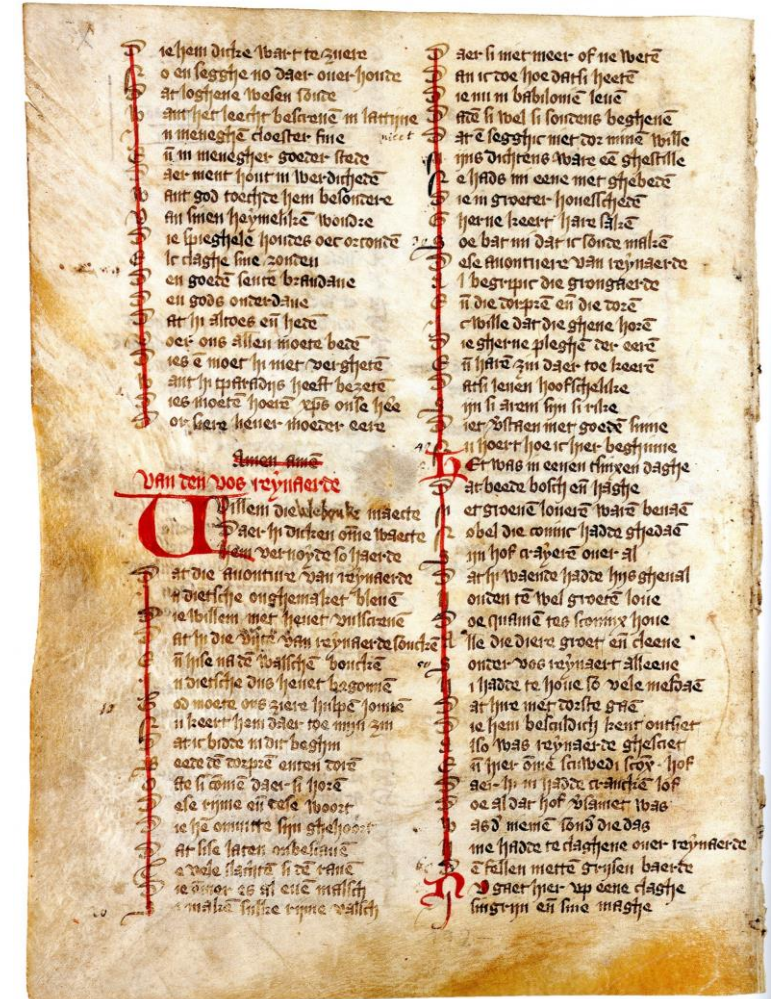 D ie hem dicke wart te zuere
N o en segghe no daer ouer houde
D at loghene wesen soude
W ant het leecht bescreuē in lattijne
I n meneghē cloester fine
E ñ in menegher goeder stede
D aer ment hout in werdichedē
W ant god toechde hem besondere
V an sinen heymelikē wondre
D ie spieghele houdes oec orcondē
I c claghe sine zonden
D en goedē sente brandane
D en gods onderdane
D at hi altoes eñ hedē
V oer ons allen moete bedē
D ies ē moet hi niet vergheten
W ant hi tparadijs heeft bezetē
D ies moetē hoerē xp̄s onse hēe
D or siere liever moeder eere
Amen amē
Van den vos reynaerde
Willem die vele bouke maecte
Daer hi dicken om̄e waecte
Hem vernoyde so haerde
D at die auonture van reynaerde
I n dietsche onghemaket bleuē
D ie willem niet heuet vulscreuē
D at hi die vijte van reynaerde soukē
E ñ hise na dē walschē bouckē
I n dietsche dus heuet begonnē
G od moete ons ziere hulpē jonnē
N u keert hem daer toe mijn zin
D at ic bidde in dit beghin
B eede dē dorprē enten dorē
O fte si comē daer si horē
D ese rijme eñ dese woort
D ie hē onnutte sijn ghehoort
D at sise laten onbescauē
T e vele slachtē si dē rauē
D ie em̄er es al euē malsch
S i makē sulke rijme valsch
D aer si niet meer of ne wetē
D an ic doe hoe datsi heetē
D ie nu in babilonien leuē
D adē si wel si soudens begheuē
D at ē segghic niet dor minē wille
M ijns dichtens ware eē ghestille
N e hads mi eene niet ghebedē
D ie in groeter houesschedē
G herne keert hare sakē
S oe bat mi dat ic soude makē
D ese auontuere van reynaerde
A l begripic die grongaerde
E ñ die dorprē eñ die dorē
I c wille dat die ghene horē
D ie gherne pleghē der eerē
E ñ harē zin daer toe keerē
D atsi leuen hoofschelike
S ijn si arem sijn si rike
D iet v̄staen met goedē sinne
N u hoert hoe ic hier beghinne
Het was in eenen tsinxen daghe
D at beede bosch eñ haghe
M et groenē loueren warē beuaē
N obel die coninc hadde ghedaē
S ijn hof crayerē ouer al
D at hi waende hadde hijs gheual
H ouden tē wel groetē loue
D oe quamē tes sconinx houe
A lle die diere groet eñ cleene
S onder vos reynaert alleene
H i hadde te houe so vele mesdaē
D at hire niet dorste gaē
D ie hem besculdich kent ontsiet
A lso was reynaerde ghesciet
E ñ hier om̄e sciwedi scōx hof
D aer hi in hadde crancken lof
D oe al dat hof v̄samet was
W as d̄ niemē sond̄ die das
H ine hadde te claghene ouer reynaerde
D ē fellen mettē grijsen baerde
Nv gaet hier vp eene claghe
I singrijn eñ sine maghe